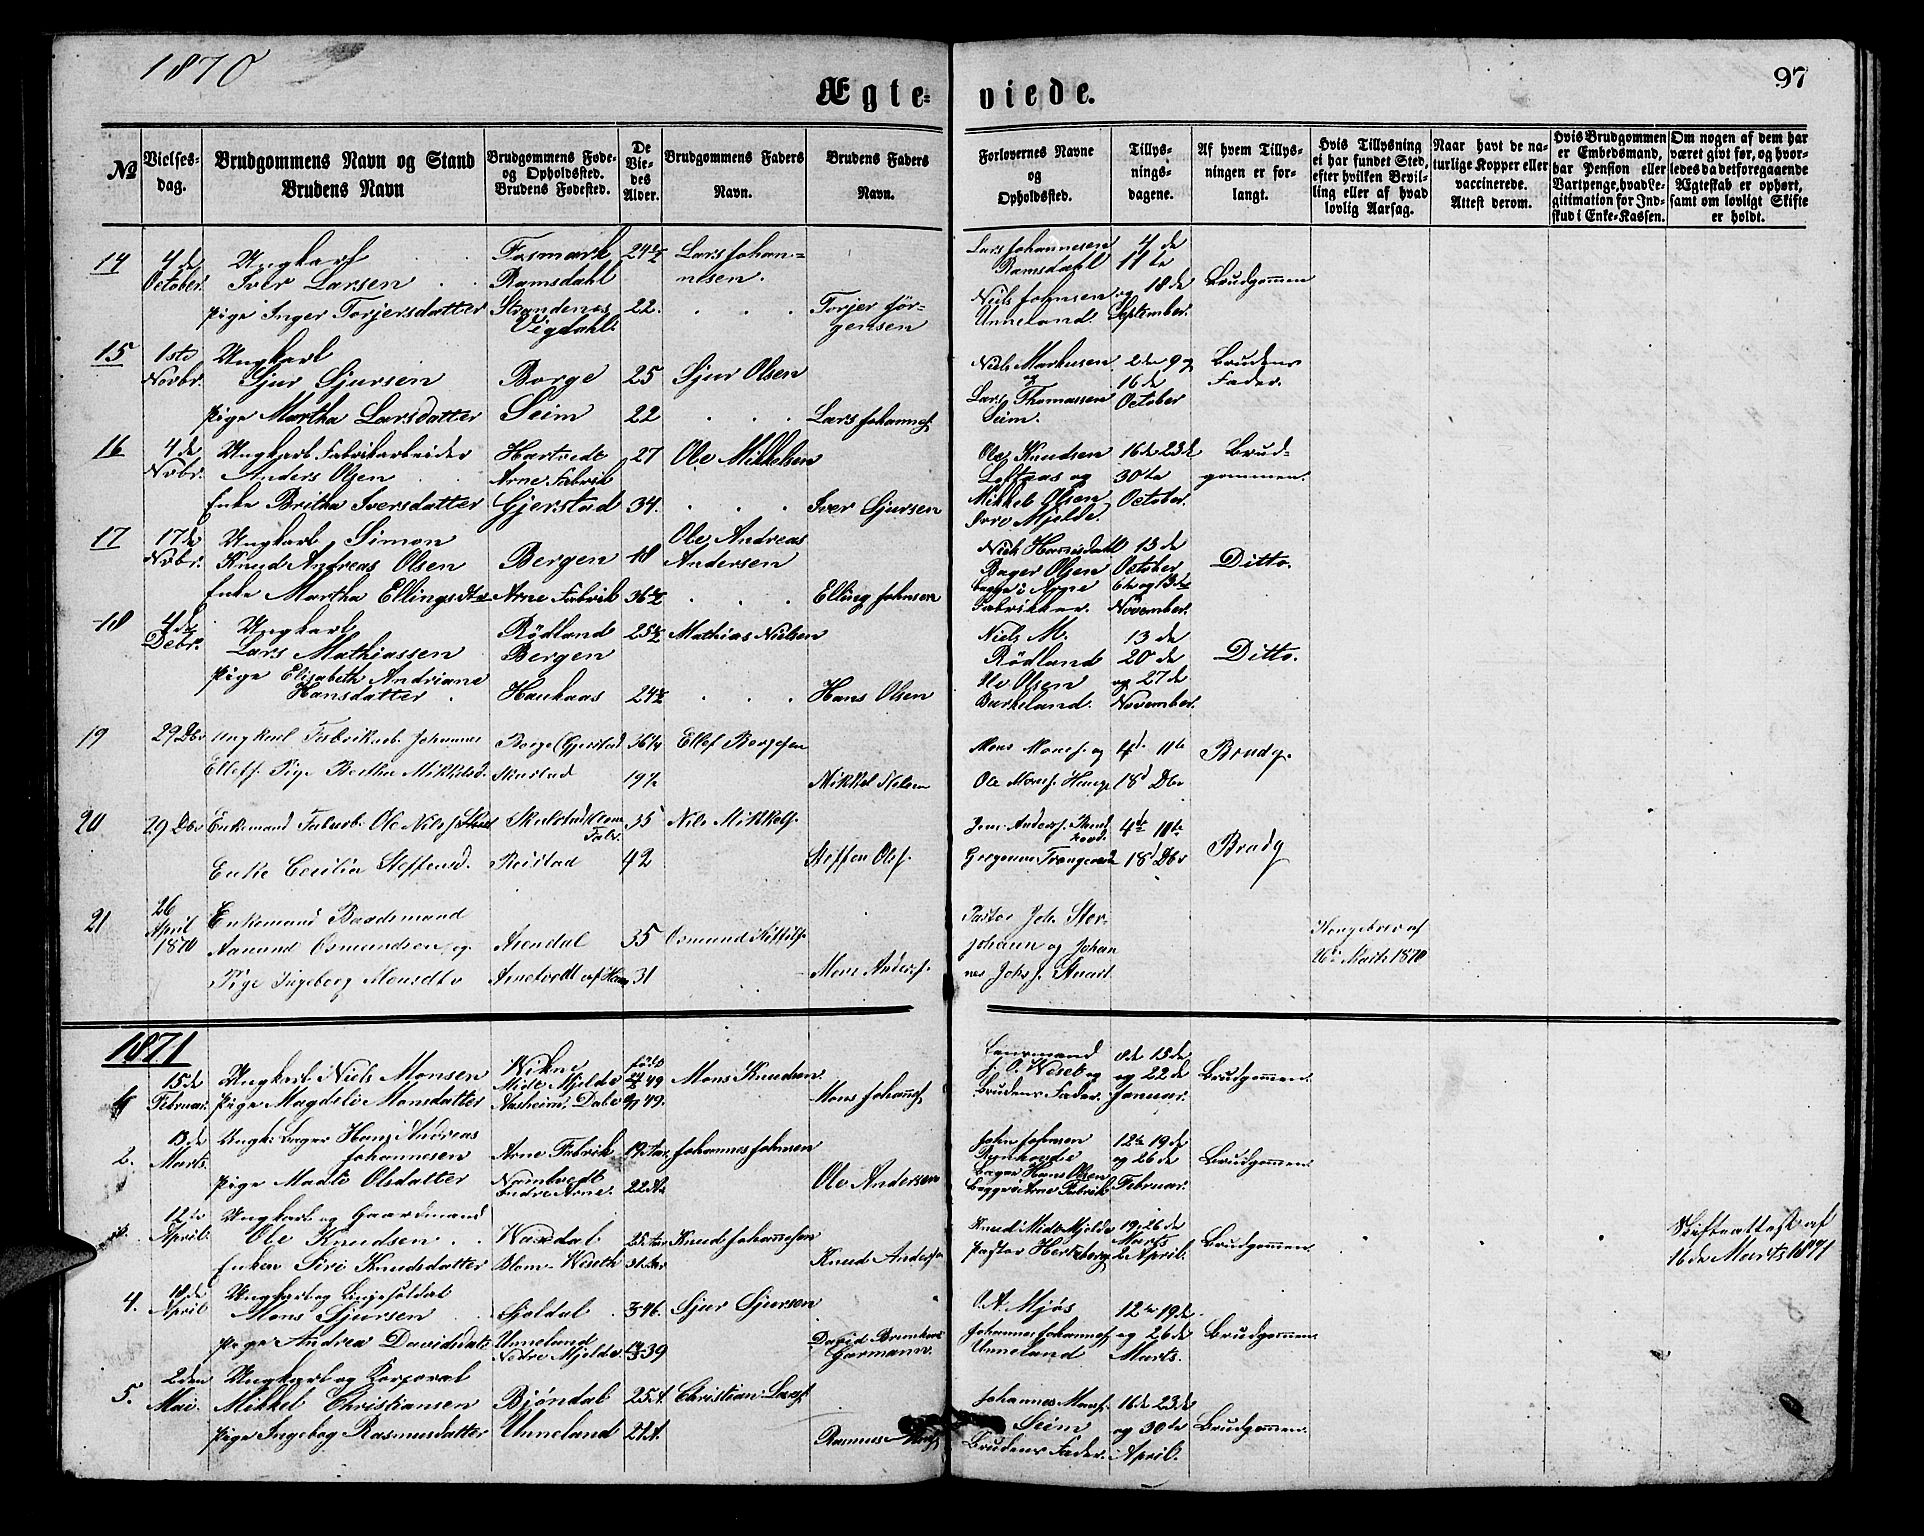 1870
97
Ægte=
viede.
No
Vielses-
dag.
Brudgommens Navn og Stand
Brudens Navn
Brudgommens Føde-
og Opholdssted.
Brudens Fødested.
De
Vie-
des
Alder.
Brudgommens Faders
Navn.
Brudens Faders
Navn.
Forlovernes Navne
og
Opholdssted.
Tillys-
nings-
dagene.
Af hvem Tillys-
ningen er for-
langt.
Hvis Tillysning
ei har fundet Sted,
efter hvilken Bevil-
ling eller af hvad
lovlig Aarsag.
Naar havt de na-
turlige Kopper eller
vaccinerede.
Attest derom.
Hvis Brudgommen
er Embedsmand,
har Pension eller
Vartpenge, hvad Le-
gitimation for Ind-
skud i Enke-Kassen.
Om nogen af dem har
været givt før, og hvor-
ledes da det foregaaende
Ægteskab er ophørt,
samt om lovligt Skifte
er holdt.
14
4de
October.
Ungkarl
Iver Larsen
Pige Inger Torjersdatter
Fosmark
Ramsdahl
Strandenes
Vigdahl.
24 1/2
22.
Lars Johan=
nesen.
Torjer Jör-
gensen
Lars Johannesen
Ramsdahl
Niels Johnsen
Unneland.
4de
11te
og 18de
September.
Brudgommen
15
1ste
Novbr.
Ungkarl
Sjur Sjursen
Pige Martha Larsdatter
Borge
Seim
25
22
Sjur Olsen
Lars Johannes.
Niels Markusen
og
Lars Thomassen
Seim.
2den 9 og
16de
October
Brudens
Fader.
16
4de
Nvbr.
Ungkarl Fabrikarbeider
Anders Olsen
Enke Britha Iversdatter
Hartvedt
Arne Fabrik
Gjerstad
27
34.
Ole Mikkelsen
Iver Sjursen
Ole Knudsen
Loftaas og
Mikkel Olsen
Övre Mjelde.
16de 23de
30te
October.
Brud-
gommen.
17
17de
Nvbr.
Ungkarl Simon
Knud Andreas Olsen
Enke Martha Ellingsdtr
Bergen
Arne Fabrik
18
36 1/2
Ole Andreas
Andersen
Elling Johnsen
Bager Olsen
begge i Arne
Fabrikker.
13de
October
6te og 13de
November.
Ditto.
18
4de
Debr.
Ungkarl
Lars Mathiassen
Pige Elisabeth Andriane
Hansdatter
Rödland
Bergen
Haukaas
25 1/2
24 1/2
Mathias Nielsen
Hans Olsen
Niels M.
Rödland
Ole Olsen
Burkeland.
13de
20de
og 27de
November.
Ditto.
19
29 Dbr
Ungkarl Fabrikarb. Johannes
Ellefs. Pige Berthe Mikkelsd.
Borge (Gjerstad
36 1/4
19 1/2
Ellef Borgesen
Mikkel Nielsen
Mons Monss. og
Ole Monss. Hauge
4de 11te
18d Dbr
Brudg.
20
29 Dbr
Enkemand Fabarb. Ole Nils.
Enke Cecilia Steffensd.
Reistad
35
42
Nils Mikkels.
Steffen Ols.
4de 11te
18d Dbr
Brudg
21
26
April
1870
Enkemand Baadsmand
Aanund Osmundsen og
Pige Ingeborg Monsdtr
Arendal
35
31
Osmund Kittils.
Mons Anders.
Pastor Joh. Stor-
johann og Johan
nes Johs.
Kongebrev af
26de Marts 1870
1871
15de
Februar.
Ungkarl Niels Monsen
Pige Magdele Monsdatter
Vikne
Midt Mjelde
födt
49
49.
Mons Knudsen.
Mons Johannes.
Lensmand
J. O. Weseb og
Brudens Fader.
8de 15de
og 22de
Januar.
Brudgommen.
2.
13de
Marts.
Ungk. Bager Hans Andreas
Johannesen
Pige Madte Olsdatter
Arne Fabrik
Indre Arne.
19 Aar
22 Aar
Johannes Johnsen
Ole Andersen
John Johnsen
Bager Hans Olsen
begge i Arne Fabrik
12te 19de
og 26de
Februar.
Brudgommen.
3.
12te
April.
Ungkarl og Gaardmand
Ole Knudsen
Enken Siri Knudsdatter
Wardal
Blom Weseth
25 Aar
31 Aar
Knud Johannesen
Knud Anderss.
Knud Midt Mjelde
Pastor Hertzberg
19, 26de
Marts
2 April.
Brudgommen.
Skifteattest af
16de Marts 1871
4.
18de
April
Ungkarl og Linjesoldat
Mons Sjursen
Pige Andrea Davidsdatr
Gjeldal
Unneland
Nedre Mjelde
46.
39
Sjur Sjursen
Garmann.
O. A. Mjös
Johannes Johannes.
Unneland
12te 19de
og 26de
Marts.
Brudgommen.
5.
2den
Mai.
Ungkarl og Korporal
Mikkel Christiansen
Pige Ingebog Rasmusdatter
Bjöndal
Unneland
25 A.
21 A.
Christian Lars.
Rasmus
Johannes Monss.
Seim
Brudens Fader.
16de 23de
og 30te
April.
Brudgommen.